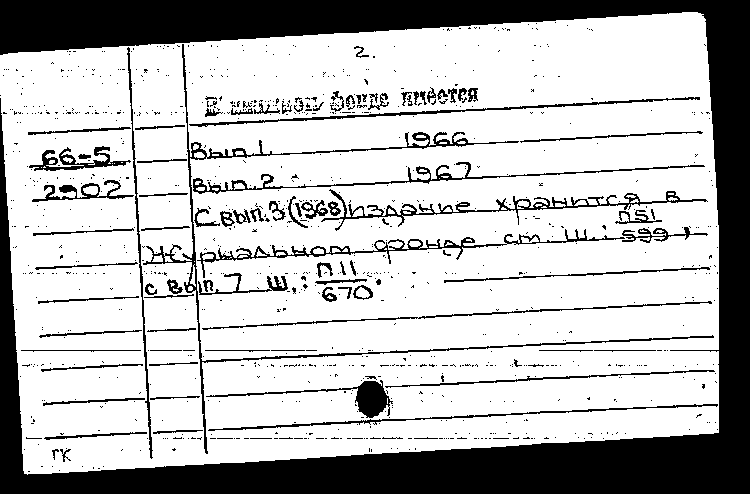 2.
В книжном фонде имеется
66-5 Вып. 1 1966
2902 Вып. 2 1967
С вып. 3 (1968) издание хранится в
журнальном фонде ст. ш.: П51/599,
с вып. 7 ш.: П11/670.
ГК